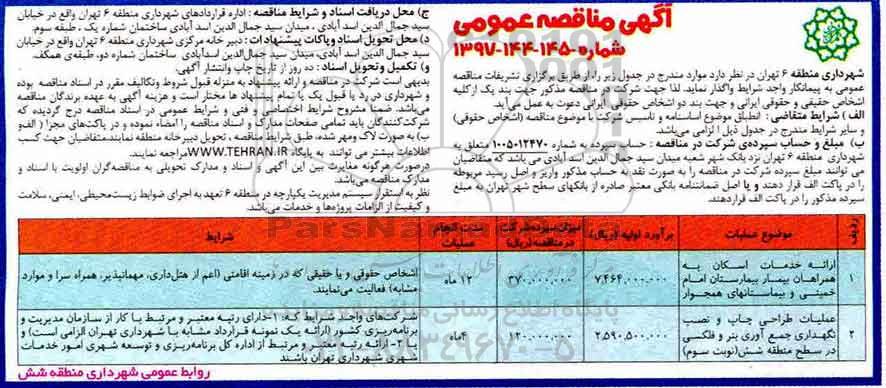 آگهی مناقصه عمومی
شماره ۱۴۵-۱۴۴-۱۳۹۷
شهرداری منطقه ۶ تهران در نظر دارد موارد مندرج در جدول زیر را، از طریق برگزاری تشریفات مناقصه
عمومی به پیمانکار واجد شرایط واگذار نماید. لذا جهت شرکت در مناقصه مذکور جهت بند یک از کلیه
اشخاص حقیقی و حقوقی ایرانی و جهت بند دو اشخاص حقوقی ایرانی دعوت به عمل می‌آید.
الف) شرایط متقاضی: انطباق موضوع اساسنامه و تاسیس شرکت با موضوع مناقصه (اشخاص حقوقی)
و سایر شرایط مندرج در جدول ذیل الزامی می‌باشد.
ب) مبلغ و حساب سپرده‌ی شرکت در مناقصه: حساب سپرده به شماره ۱۰۰۵۰۱۲۴۷۰ متعلق به
شهرداری منطقه ۶ تهران نزد بانک شهر شعبه میدان سید جمال الدین اسد آبادی می باشد که متقاضیان
می توانند مبلغ سپرده شرکت در مناقصه را به صورت نقد به حساب مذکور واریز و اصل رسید مربوطه
را در پاکت الف قرار دهند و یا اصل ضمانتنامه بانکی معتبر صادره از بانکهای سطح شهر تهران به مبلغ
سپرده مذکور را در پاکت الف قراردهند.
ج) محل دریافت اسناد و شرایط مناقصه: اداره قراردادهای شهرداری منطقه ۶ تهران واقع در خیابان
سید جمال الدین اسد آبادی، میدان سید جمال الدین اسد آبادی ساختمان شماره یک، طبقه سوم.
د) محل تحویل اسناد و پاکات پیشنهادات: دبیر خانه مرکزی شهرداری منطقه ۶ تهران واقع در خیابان
سید جمال الدین اسد آبادی، میدان سید جمال‌الدین اسدآبادی، ساختمان شماره دو، طبقه‌ی همکف.
و) تکمیل و تحویل اسناد: ده روز از تاریخ چاپ وانتشار آگهی.
بدیهی است شرکت در مناقصه و ارائه پیشنهاد به منزله قبول شروط وتکالیف مقرر در اسناد مناقصه بوده
و شهرداری در رد یا قبول یک یا تمام پیشنهاد ها مختار است و هزینه آگهی به عهده برندگان مناقصه
می‌باشد. ضمنا مشروح شرایط اختصاصی و فنی و شرایط عمومی در اسناد مناقصه درج گردیده که
شرکت‌کنندگان باید تمامی صفحات مدارک و اسناد مناقصه را امضاء نموده و در پاکت‌های مجزا (الف‌و
ب) به صورت لاک ومهر شده، طبق شرایط مناقصه، تحویل دبیرخانه منطقه نمایند.متقاضیان جهت کسب
اطلاعات بیشتر می توانند به پایگاه WWW.TEHRAN.IR مراجعه نمایند.
درصورت هرگونه مغایرت بین این آگهی و اسناد و مدارک تحویلی به مناقصه‌گران اولویت با اسناد و
مدارک مناقصه می‌باشد.
نظر به استقرار سیستم مدیریت یکپارچه در منطقه ۶ تعهد به اجرای ضوابط زیست‌محیطی، ایمنی، سلامت
و کیفیت از الزامات پروژه‌ها و خدمات می‌باشد.
ردیف موضوع عملیات برآورد اولیه (ریال) میزان سپرده شرکت در مناقصه (ریال) مدت انجام عملیات شرایط
۱ ارائه خدمات اسکان به همراهان بیمار بیمارستان امام خمینی و بیماستانهای همجوار ۷,۴۶۴,۰۰۰,۰۰۰ ۳۷۰,۰۰۰,۰۰۰ ۱۲ ماه اشخاص حقوقی و یا حقیقی که در زمینه اقامتی (اعم از هتل‌داری، مهمانپذیر، همراه سرا و موارد مشابه) فعالیت می‌نمایند.
۲ عملیات طراحی چاپ و نصب نگهداری جمع آوری بنر و فلکسی در سطح منطقه شش(نوبت سوم) ۲,۵۹۰,۵۰۰,۰۰۰ ۱۳۰,۰۰۰,۰۰۰ ۴ماه شرکت‌های واجد شرایط که: ۱-دارای رتبه معتبر و مرتبط با کار از سازمان مدیریت و برنامه‌ریزی کشور (ارائه یک نمونه قرارداد مشابه با شهرداری تهران الزامی است) و یا ۲- ارائه رتبه معتبر و مرتبط از اداره کل برنامه‌ریزی و توسعه شهری امور خدمات شهری شهرداری تهران باشند
روابط عمومی شهرداری منطقه شش